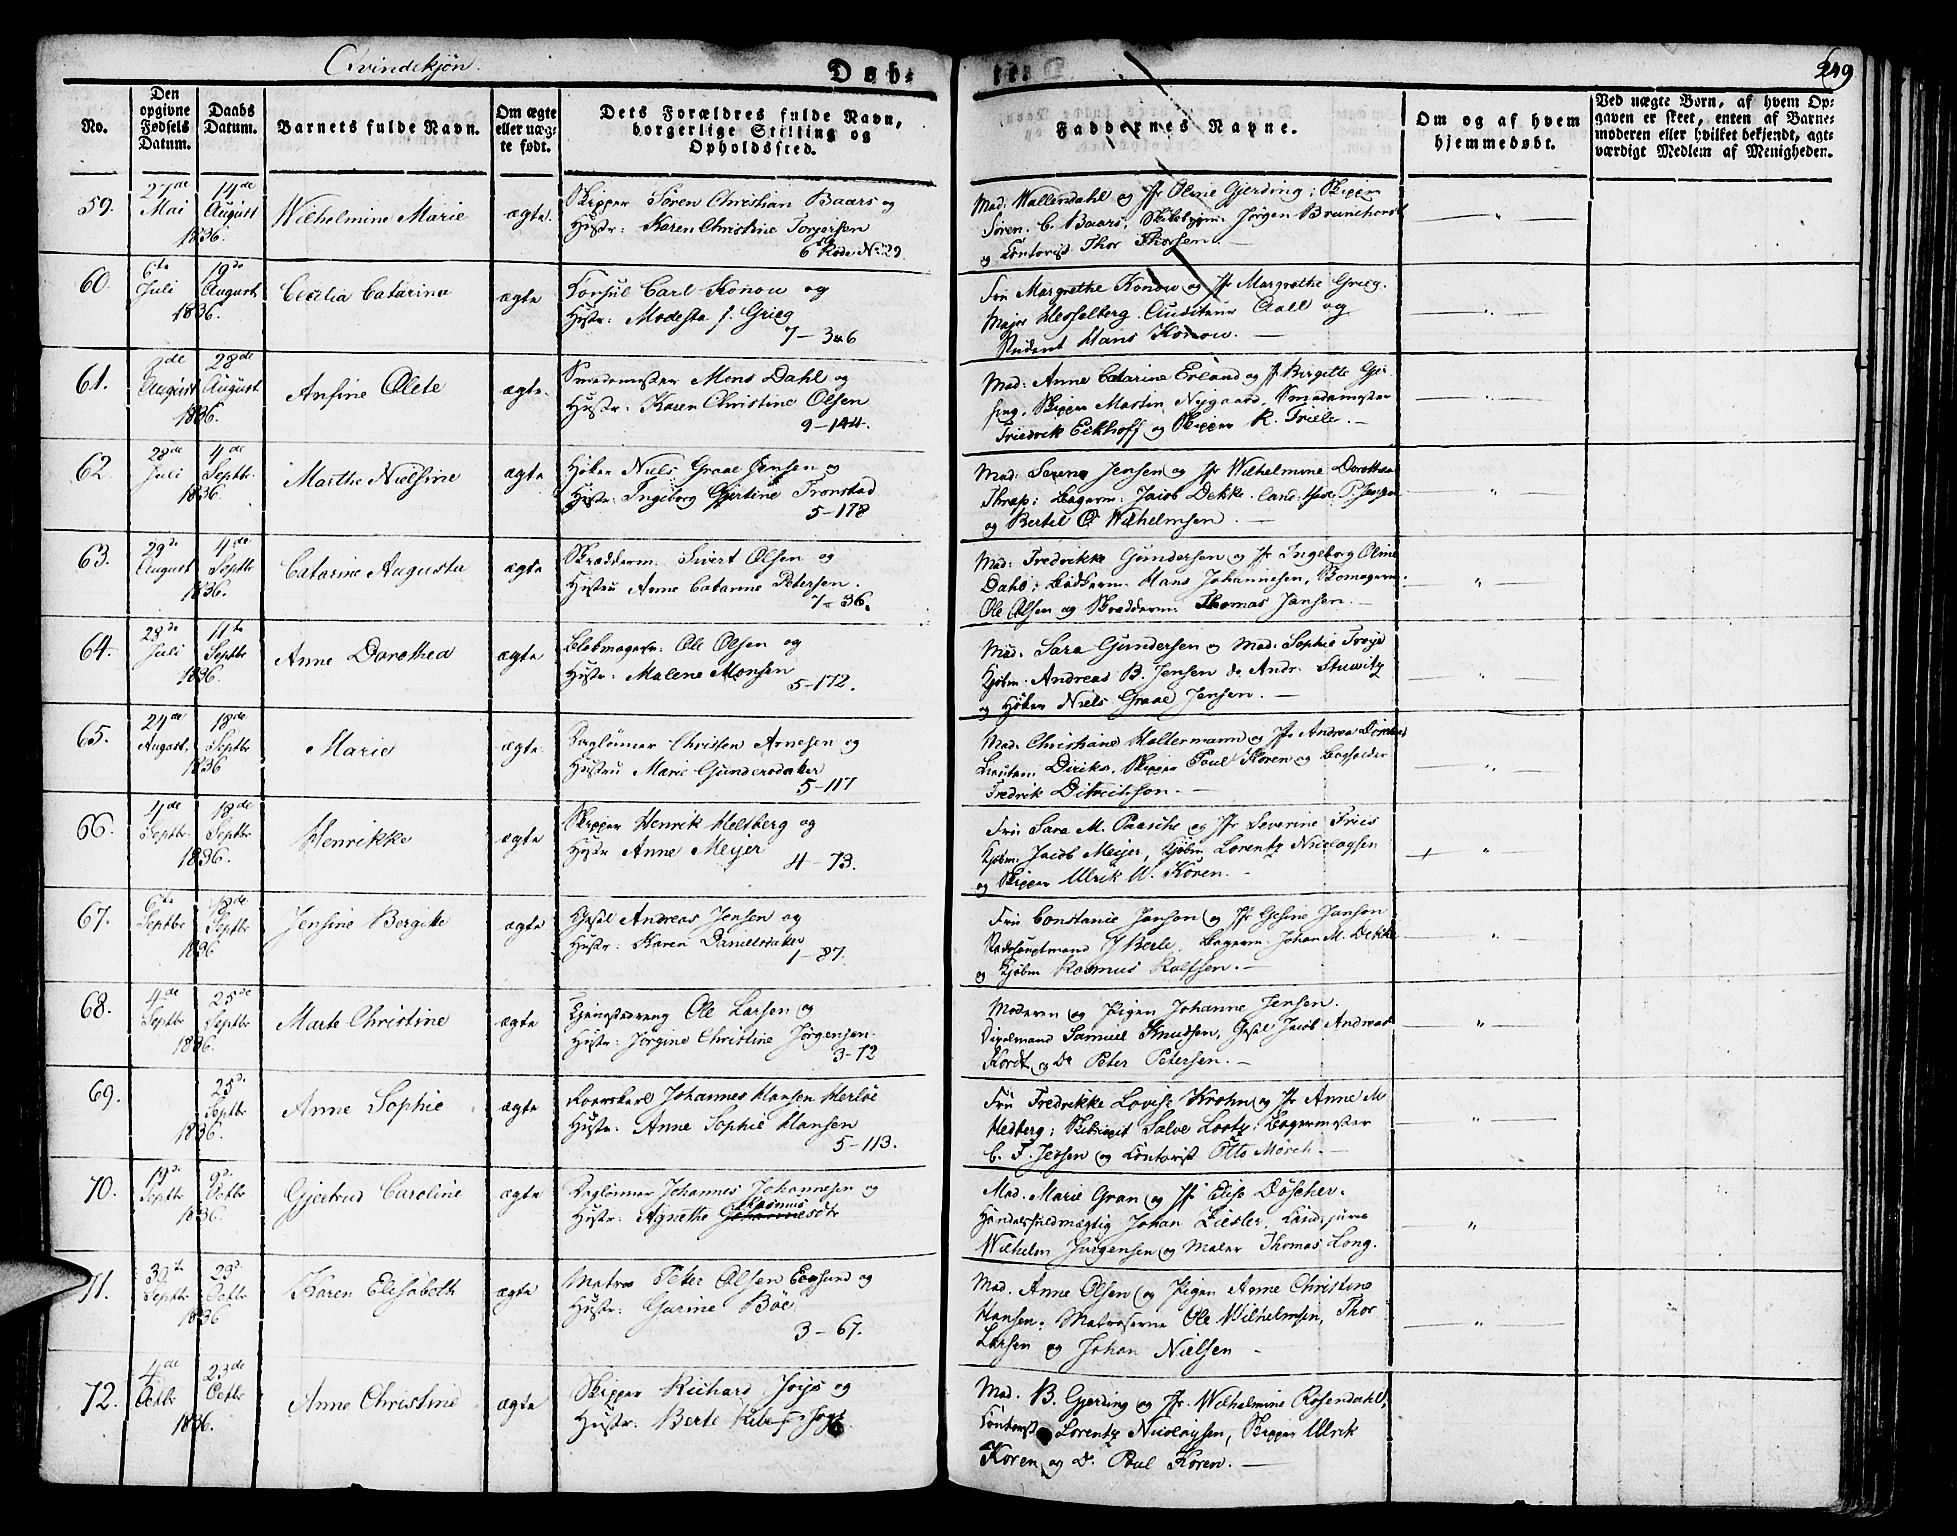 Qvindekjøn.
Døb-
te.
249
No.
Den opgivne Fødsels Datum.
Daabs Datum.
Barnets fulde Navn.
Om ægte eller uæg-te født.
Dets Forældres fulde Navn, borgerlige Stilling og Opholdssted.
Faddernes Navne.
Om og af hvem hjemmedøbt.
Ved uægte Børn, af hvem Op-gaven er skeet, enten af Barne-moderen eller hvilket bekjendt, agt-værdigt Medlem af Menigheden.
59.
27de Mai
14de August
1836.
Wilhelmine Marie
ægte.
Skipper Søren Christian Baars og
Hustr: Karen Christine Torjersen
6 Rode No 29
Mad: Wallendahl og Jfr Oline Gjerding; Skipper
Søren C. Baars, Skibsbygm: Jørgen Brunchorst
og Contorist Thor Thorsen. —
60.
6te Juli
19de August
1836.
Cecilia Catarina
ægte
Consul Carl Konow og
Hustr: Modesta f. Grieg
7 – 3 & 6
Fru Margrethe Konow og Jfr Margrethe Grieg.
Major Hesselberg. Auditeur Aall og
Student Hans Konow. —
61.
August
28de August
1836.
Ansine Olete
ægte.
Smedemester Mons Dahl og
Hustr: Karen Christine Olsen
9 – 144.
Mad: Anne Catarine Erland og Jfr Birgitte Gjer-
sing, Skipper Martin Nygaard, Smedemester
Friedrik Eckhoff og Skipper R. Friele. —
62.
28de Juli
4de Septbr
1836
Marthe Nielsine
ægte
Høker Niels Graae Jensen og
Hustr: Ingeborg Gjertine Tronstad
5 – 178
Mad: Serene Jensen og Jfr Wilhelmine Dorothea
Thrap; Bagerm: Jacob Dekke. Cand: theol: P. Jensen
og Bertel O Wilhelmsen. —
63.
29de August
4de Septbr
1836.
Catarine Augusta
ægte
Skrædderm. Sivert Olsen og
Hustru Anne Catarine Petersen.
7 – 36.
Mad: Fredrikke Gundersen og Jfr Ingeborg Oline
Dahl; Bødkerm. Hans Johannesen, Skomagerm.
Ole Olsen og Skrædderm: Thomas Jansen. —
64.
28de Juli
11te Septbr
1836
Anne Dorothea
ægte
Blokmagerm: Ole Olsen og
Hustr: Malene Monsen
5 – 172.
Mad: Sara Gundersen og Mad. Sophie Troye
Kjøbm. Andreas B. Jensen do Andr. Stuwitz
og Høker Niels Graae Jensen. —
65.
24de August,
18de Septbr
1836
Marie
ægte.
Daglønner Christen Arnesen og
Hustru Marie Gundersdatter
5 – 117
Mad. Christiane Holtermann og Jfr Andrea
Lieutn: Diriks, Skipper Poul Koren og Bogholder
Fredrik Ditvitsson. —
66.
4de Septbr
18de Septbr
1836.
Henrikke
ægte
Skipper Henrik Heltberg og
Hustr Anne Meyer
4 – 73.
Fru Sara M. Paasche og Jfr Severine Friis
Kjøbm: Jacob Meyer, Kjøbm Lorentz Nicolaysen
og Skipper Ulrik W. Koren. —
67.
6te Septbr
18de Septbr
1836
Jensine Bergitte
ægte
Gesel Andreas Jensen og
Hustr: Karen Danielsdatter
1 – 87.
Fru Constance Janson og Jfr Gesine Janson
J Berle. Bagerm: Johan M. Dekke
og Kjøbm Rasmus Rolfsen. —
68.
4de Septbr
25de Septbr
1836.
Marte Christine
ægte
Ole Larsen og
Hustr: Jørgine Christine Jørgensen.
3 – 72
Moderen og Pigen Johanne Jensen.
Samuel Knudsen, Gesel Jacob Andreas
Kordt, og Do Peter Petersen. —
69.
25de Septbr
1836.
Anne Sophie
ægte
Roerskarl Johannes Hansen Herløe
Hustr: Anne Sophie Hansen
5 – 113.
Fru Fredrikke Lovise Krohn og Jfr Anne M
Hedberg; Salve Lootz, Bagermester
C. F. Jessen og Contorist Otto Mørch. —
70.
19de Septbr
9de Octbr
1836
Gjertrud Caroline
ægte
Daglønner Johannes Johannesen og
Hustr: Agnethe Rasmus Johannesdtr
Mad. Marie Gran og Jfr Elise Döscher.
Handelsfuldmægtig Johan Ziesler. Cand: juris
Wilhelm Jürgensen og Maler Thomas Long.
71.
30te Septbr
23de Octbr
1836
Karen Elisabeth
ægte
Matros Peter Olsen Egesund og
Hustr: Gurine Böe
3 – 67.
Mad. Anne Olsen og Pigen Anne Christine
Hansen: Matroserne Ole Wilhelmsen, Thor
Larsen og Johan Nielsen —
72.
4de Octbr
23de Octbr
1836.
Anne Christine
ægte
Skipper Richard Joys og
Hustr: Berte
Mad. B. Gjerding og Jfr. Wilhelmine Rosendahl,
Contorist Lorentz Nicolaysen, Skipper Ulrik
Koren og Do Poul Koren. —